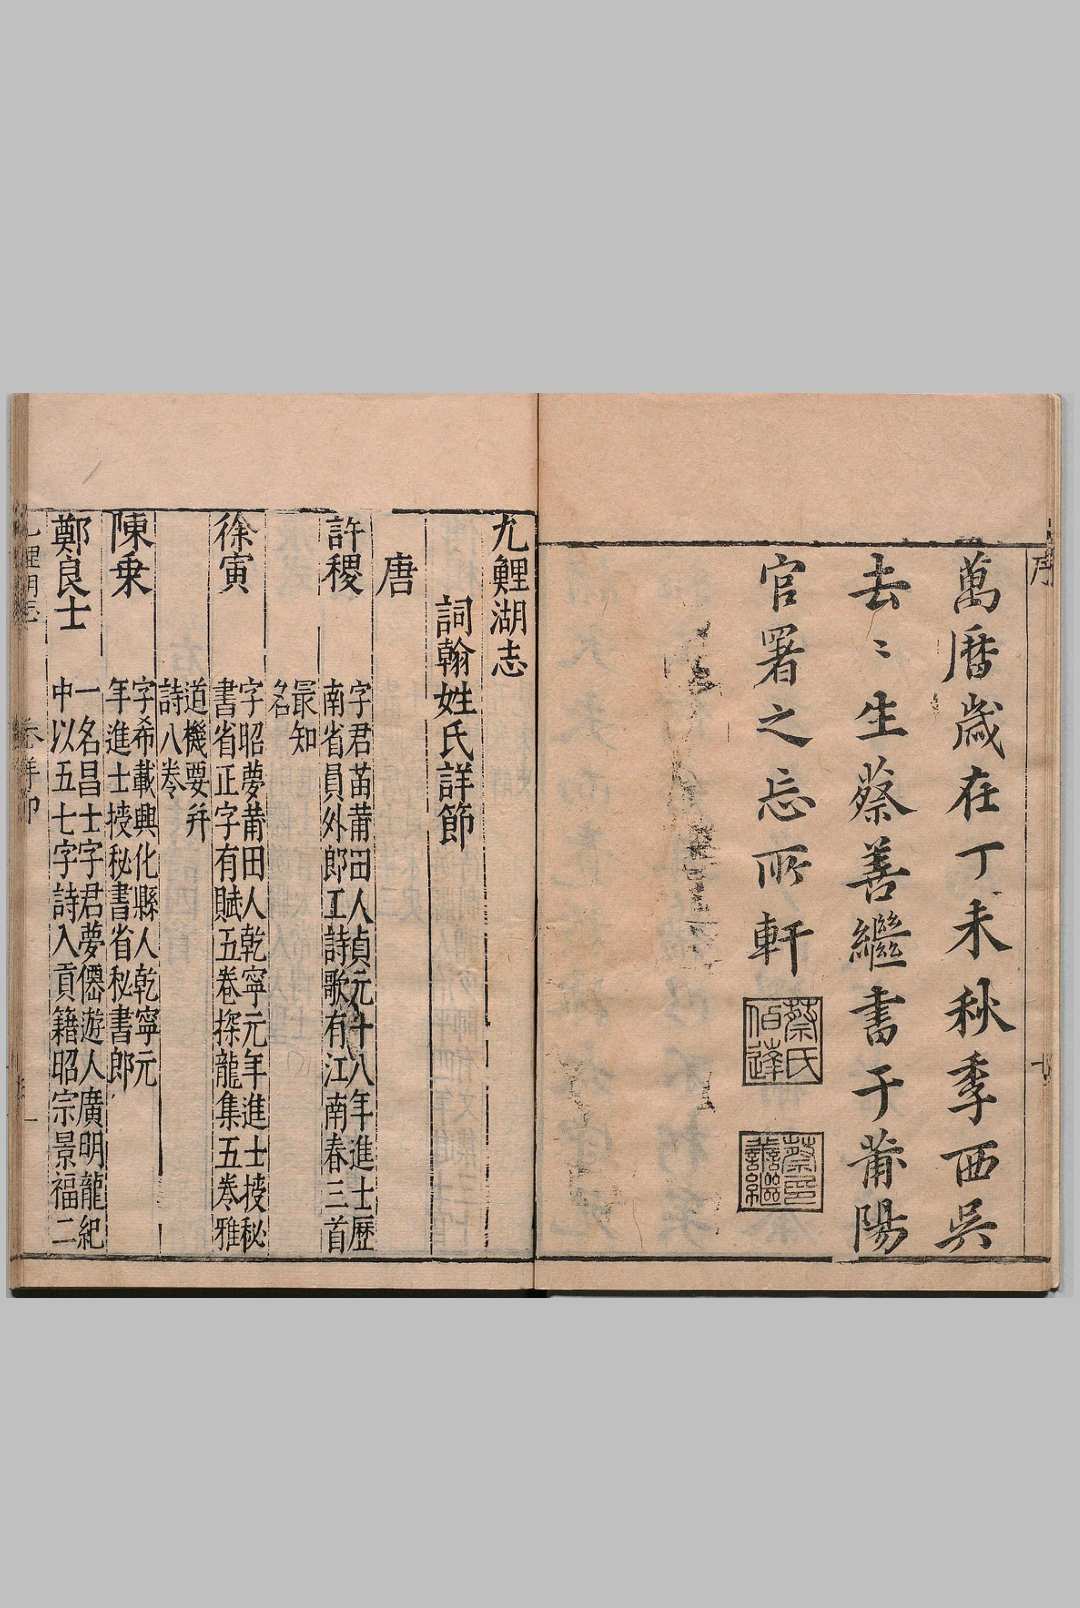 序
萬曆歲在丁未秋季西吳
去〻生蔡善繼書于莆陽
官署之忘所軒
蔡氏伯達
蔡善繼印
七
九鯉湖志
詞翰姓氏詳節
唐
許稷
字君苗莆田人貞元十八年進士歷
南省員外郎工詩歌有江南春三首
最知
名
徐寅
字昭夢莆田人乾寧元年進士授秘
書省正字有賦五卷探龍集五卷雅
道機要并
詩八卷
陳乗
字希載興化縣人乾寧元
年進士授秘書省秘書郎
鄭良士
一名昌士字君夢僊遊人廣明龍紀
中以五七字詩入貢籍昭宗景福二
九鯉湖志
一